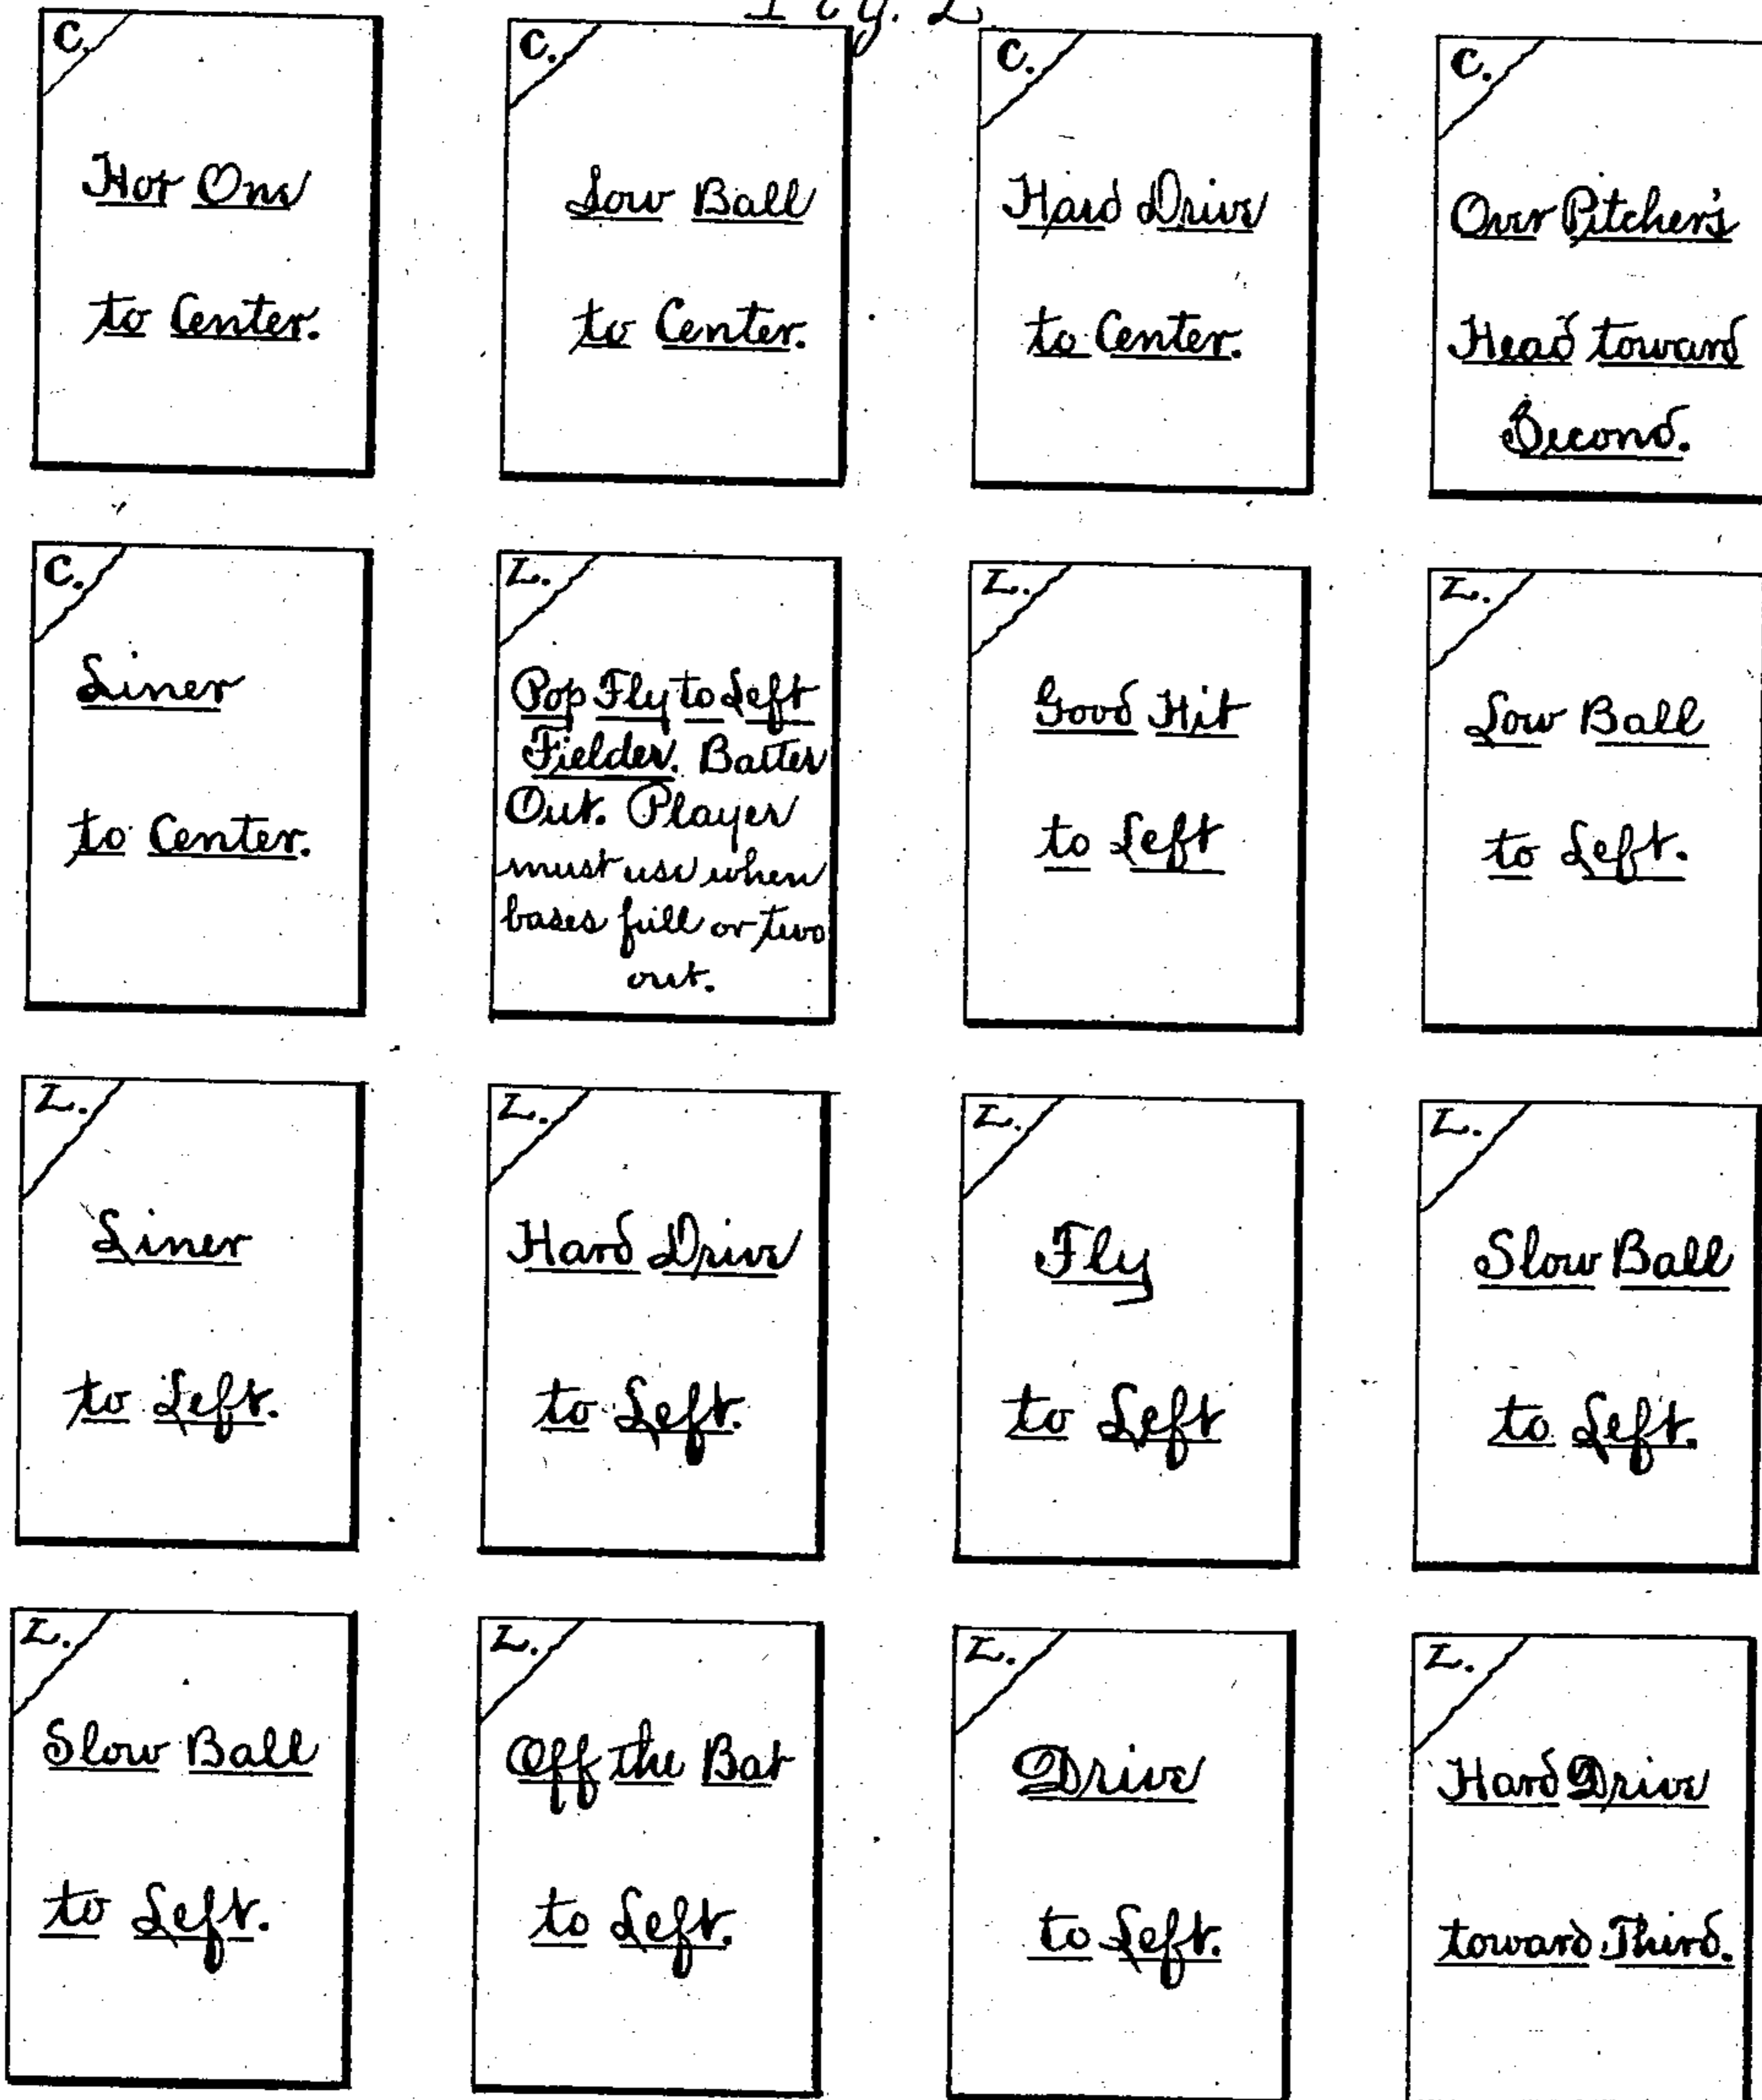 Fig. 2
C.
Hot One
to Center.
C.
Low Ball
to Center.
C.
Hard Drive
to Center.
C.
Over Pitcher's
Head toward
Second.
C.
Liner
to Center.
L.
Pop Fly to Left
Fielder. Batter
Out. Player
must use when
bases full or two
out.
L.
Good Hit
to Left
L.
Low Ball
to Left.
L.
Liner
to Left.
L.
Hard Drive
to Left.
L.
Fly
to Left
L.
Slow Ball
to Left.
L.
Slow Ball
to Left.
L.
Off the Bat
to Left.
L.
Drive
to Left.
L.
Hard Drive
toward Third.